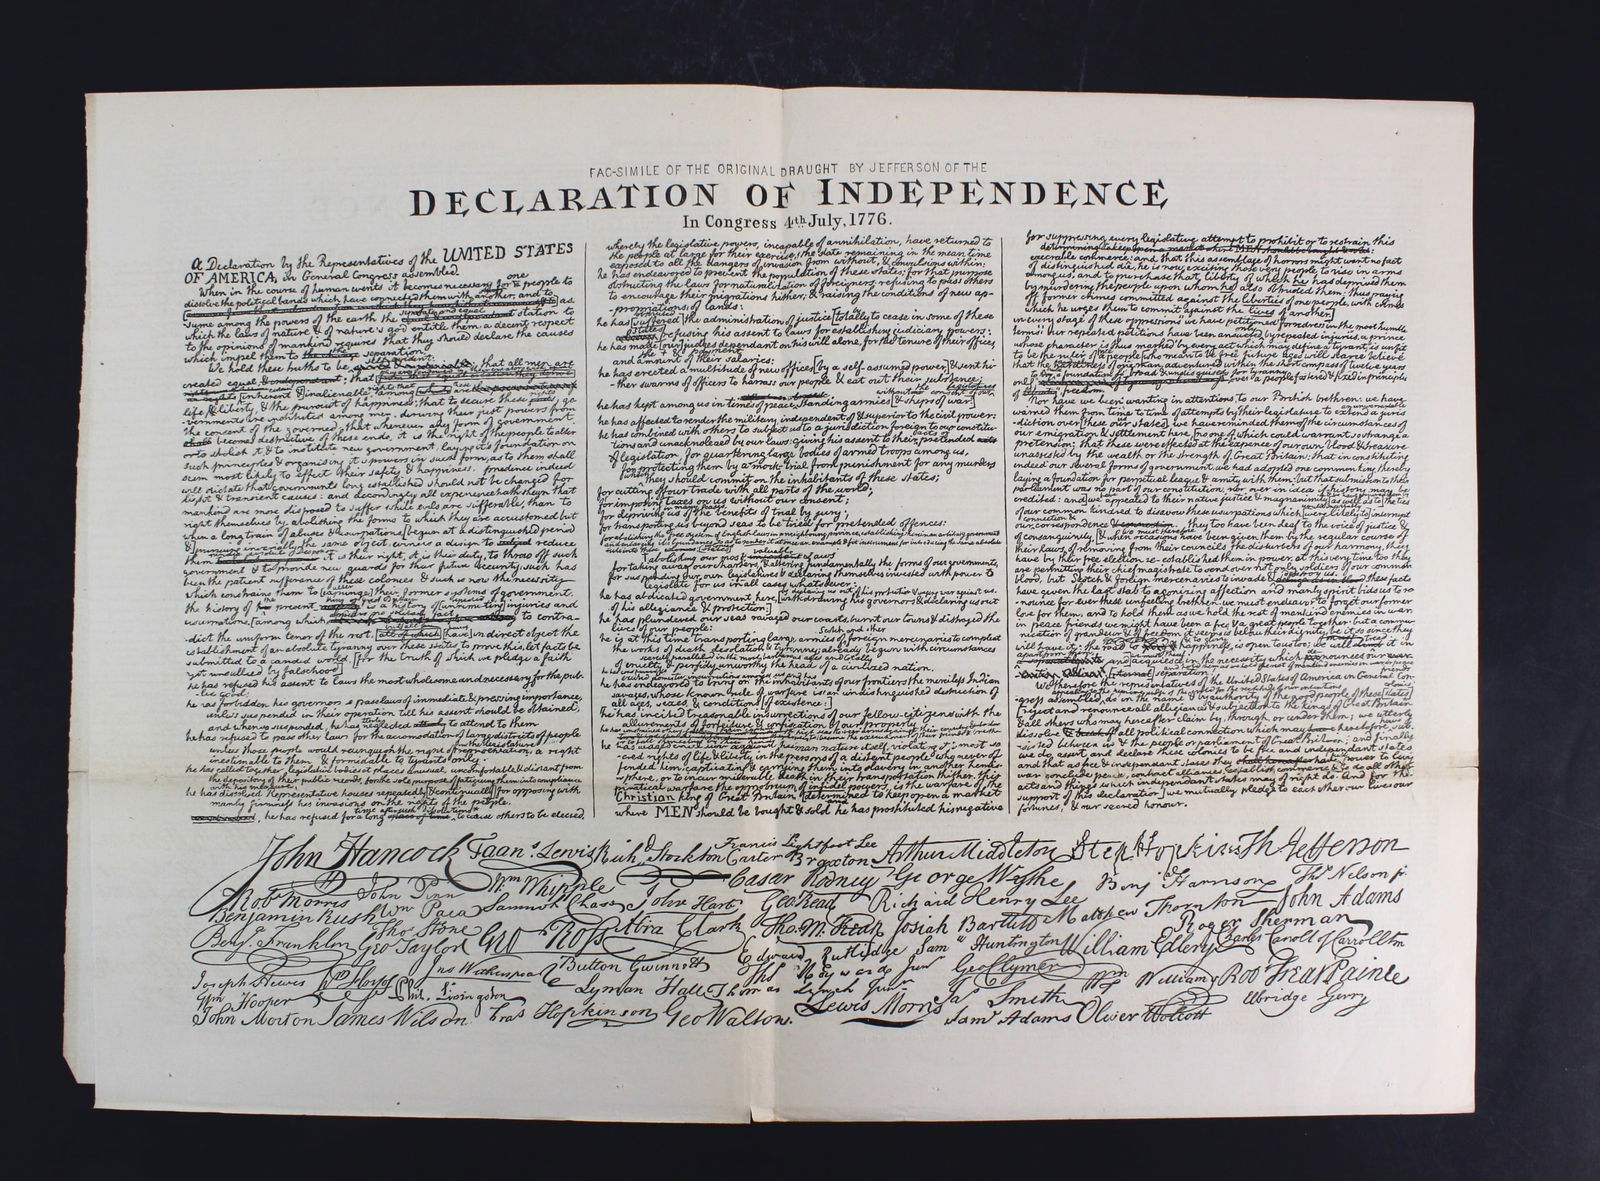 FAC-SIMILE OF THE ORIGINAL DRAUGHT BY JEFFERSON OF THE
DECLARATION OF INDEPENDENCE
In Congress 4th July, 1776.
A Declaration by the Representatives of the UNITED STATES
OF AMERICA, in General Congress assembled.
When in the course of human events it becomes necessary for one people to
dissolve the political bands which have connected them with another, and to
sume among the powers of the earth the separate and equal station to
which the laws of nature & of nature's god entitle them, a decent respect
to the opinions of mankind requires that they should declare the causes
which impel them to separation.
We hold these truths to be self evident; that all men are
created equal
life & liberty, & the pursuit of happiness; that to secure these
-vernments are instituted among men, deriving their just powers from
the consent of the governed; that whenever any form of government
shall becomes destructive of these ends, it is the right of the people to alter
or to abolish it, & to institute new government, laying it's foundation on
such principles & organising it's powers in such form, as to them shall
seem most likely to effect their safety & happiness. prudence indeed
will dictate that governments long established should not be changed for
light & transient causes: and accordingly all experience hath shewn that
mankind are more disposed to suffer while evils are sufferable, than to
right themselves by abolishing the forms to which they are accustomed but
when a long train of abuses & usurpations [begun at a distinguished period
the same object, evinces a design to reduce
them it is their right, it is their duty, to throw off such
government & to provide new guards for their future security. such has
been the patient sufferance of these colonies & such is now the necessity
which constrains them to [expunge] their former systems of government.
the history of the present is a history of [unremitting] injuries and
usurpations, [among which to contra-
-dict the uniform tenor of the rest, [all of which] [have] in direct object the
establishment of an absolute tyranny over these states. to prove this let facts be
submitted to a candid world, [for the truth of which we pledge a faith
yet unsullied by falsehood]
he has refused his assent to laws the most wholesome and necessary for the pub-
-lic good:
he has forbidden his governors to pass laws of immediate & pressing importance,
unless suspended in their operation till his assent should be obtained,
and when suspended, he has neglected utterly to attend to them
he has refused to pass other laws for the accomodation of large districts of people
unless those people would relinquish the right of representation, a right
inestimable to them, & formidable to tyrants only:
he has called together legislative bodies at places unusual, uncomfortable & distant from
the depository of their public records, for the sole purpose of fatiguing them into compliance
with his measures;
he has dissolved Representative houses repeatedly [& continually] for opposing with
manly firmness his invasions on the rights of the people.
he has refused for a long to cause others to be elected,
whereby the legislative powers, incapable of annihilation, have returned to
the people at large for their exercise, the state remaining in the mean time
exposed to all the dangers of invasion from without, & convulsions within:
he has endeavored to prevent the population of these states; for that purpose
obstructing the laws for naturalization of foreigners; refusing to pass others
to encourage their migrations hither; & raising the conditions of new ap-
-propriations of lands:
he has [suffered] the administration of justice [totally to cease in some of these
states] refusing his assent to laws for establishing judiciary powers:
he has made [our] judges dependant on his will alone, for the tenure of their offices,
and amount of their salaries:
he has erected a multitude of new offices [by a self-assumed power] & sent hi-
-ther swarms of officers to harrass our people & eat out their substance;
he has kept among us in times of peace standing armies [& ships of war]
he has affected to render the military, independent of & superior to the civil power:
he has combined with others to subject us to a jurisdiction foreign to our constitu-
tions and unacknoleged by our laws; giving his assent to their pretended acts
of legislation, for quartering large bodies of armed troops among us,
for protecting them by a mock-trial from punishment for any murders
they should commit on the inhabitants of these states;
for cutting off our trade with all parts of the world;
for imposing taxes on us without our consent;
for depriving us of the benefits of trial by jury;
for transporting us beyond seas to be tried for pretended offences:
for taking away our charters, & altering fundamentally the forms of our governments,
for suspending our own legislatures & declaring themselves invested with power to
legislate for us in all cases whatsoever:
he has abdicated government here, [withdrawing his governors & declaring us out
of his allegiance & protection]
he has plundered our seas ravaged our coasts, burnt our towns & distroyed the
lives of our people:
he is at this time transporting large armies of foreign mercenaries to compleat
the works of death, desolation & tyranny, already begun with circumstances
of cruelty & perfidy unworthy the head of a civilized nation.
he has endeavored to bring on the inhabitants of our frontiers the merciless Indian
savages, whose known rule of warfare is an undistinguished destruction of
all ages, sexes, & conditions [of existence:]
he has incited treasonable insurrections of our fellow-citizens with the
allurements of forfeiture & confiscation of our property
he has waged cruel war against human nature itself, violating it's most sa-
-cred rights of life & liberty in the persons of a distant people who never of-
fended him, captivating & carrying them into slavery in another hemis-
sphere, or to incur miserable death in their transportation thither. this
piratical warfare, the opprobrium of infidel powers, is the warfare of the
Christian king of Great Britain [determined to keep open a market
where MEN should be bought & sold he has prostituted his negative
for suppressing every legislative attempt to prohibit or to restrain this
execrable commerce: and that this assemblage of horrors might want no fact
of distinguished die, he is now exciting those very people to rise in arms
among us, and to purchase that liberty of which he has deprived them
by murdering the people upon whom he also obtruded them: thus paying
off former crimes committed against the liberties of one people, with crimes
which he urges them to commit against the lives of another]
in every stage of these oppressions we have petitioned for redress in the most humble
terms; our repeated petitions have been answered by repeated injuries. a prince
whose character is thus marked by every act which may define a tyrant, is unfit
to be the ruler of a people [who mean to be free. future ages will scarce believe
that the hardiness of one man, adventured within the short compass of twelve years
Nor have we been wanting in attentions to our British brethren. we have
warned them from time to time of attempts by their legislature to extend a juris
-diction over [these our states]. we have reminded them of the circumstances of
our emigration & settlement here, [no one of which could warrant so strange a
pretension: that these were effected at the expence of our own blood & treasure
unassisted by the wealth or the strength of Great Britain: that in constituting
indeed our several forms of government, we had adopted one common king, thereby
laying a foundation for perpetual league & amity with them: but that submission to their
parliament was no part of our constitution, nor ever in idea if history may be
credited: and] we appealed to their native justice & magnanimity [as well as to] the ties
of our common kindred to disavow these usurpations which [were likely to] interrupt
our correspondence & connection. They too have been deaf to the voice of justice &
of consanguinity, [& when occasions have been given them, by the regular course of
their laws, of removing from their councils the disturbers of our harmony, they
have by their free election re-established them in power. at this very time too they
are permitting their chief magistrate to send over not only soldiers of our common
blood, but Scotch & foreign mercenaries to invade & these facts
have given the last stab to agonizing affection and manly spirit bids us to re
-nounce for ever these unfeeling brethren. we must endeavor to forget our former
love for them, and to hold them as we hold the rest of mankind enemies in war,
in peace friends. we might have been a free & a great people together; but a commu-
nication of grandeur & of freedom it seems is below their dignity. be it so since they
will have it: the road to happiness, is open to us too; we will it in
and acquiesce in the necessity which our
[eternal] separation
We therefore the representatives of the United States of America in General Con-
-gress assembled, do in the name & by authority of the good people of these [states]
reject and renounce all allegiance & subjection to the kings of Great Britain
& all others who may hereafter claim by, through, or under them; we utterly
dissolve all political connection which may have
-sisted between us & the people or parliament of Great Britain; and finally
we do assert and declare these colonies to be free and independent states
and that as free & independent states they have power to levy
war conclude peace, contract alliances, establish commerce, & to do all other
acts and things which independent states may of right do. And for the
support of this declaration we mutually pledge to each other our lives our
fortunes, & our sacred honour.
John Hancock Frans. Lewis Richd. Stockton Francis Lightfoot Lee Carter Braxton Arthur Middleton Step. Hopkins Th Jefferson
Robt Morris John Penn Wm Whipple Cæsar Rodney George Wythe Benj Harrison Thos. Nelson jr.
Benjamin Rush Wm Paca Samuel Chase John Hart Geo Read Richard Henry Lee Matthew Thornton John Adams
Benj. Franklin Thos Stone Geo Taylor Geo Ross Abra Clark Tho. M. Kean Josiah Bartlett Roger Sherman
Edward Rutledge Saml. Huntington William Ellery Charles Carroll of Carrollton
Joseph Hewes Jno Witherspoon Button Gwinnett Thos Heyward Junr Geo Clymer Wm Williams Rob Treat Paine
Wm Hooper Phil. Livingston Lyman Hall Thomas Lynch Junr Jas Smith Elbridge Gerry
John Morton James Wilson Fras Hopkinson Geo Walton. Lewis Morris Saml Adams Oliver Wolcott